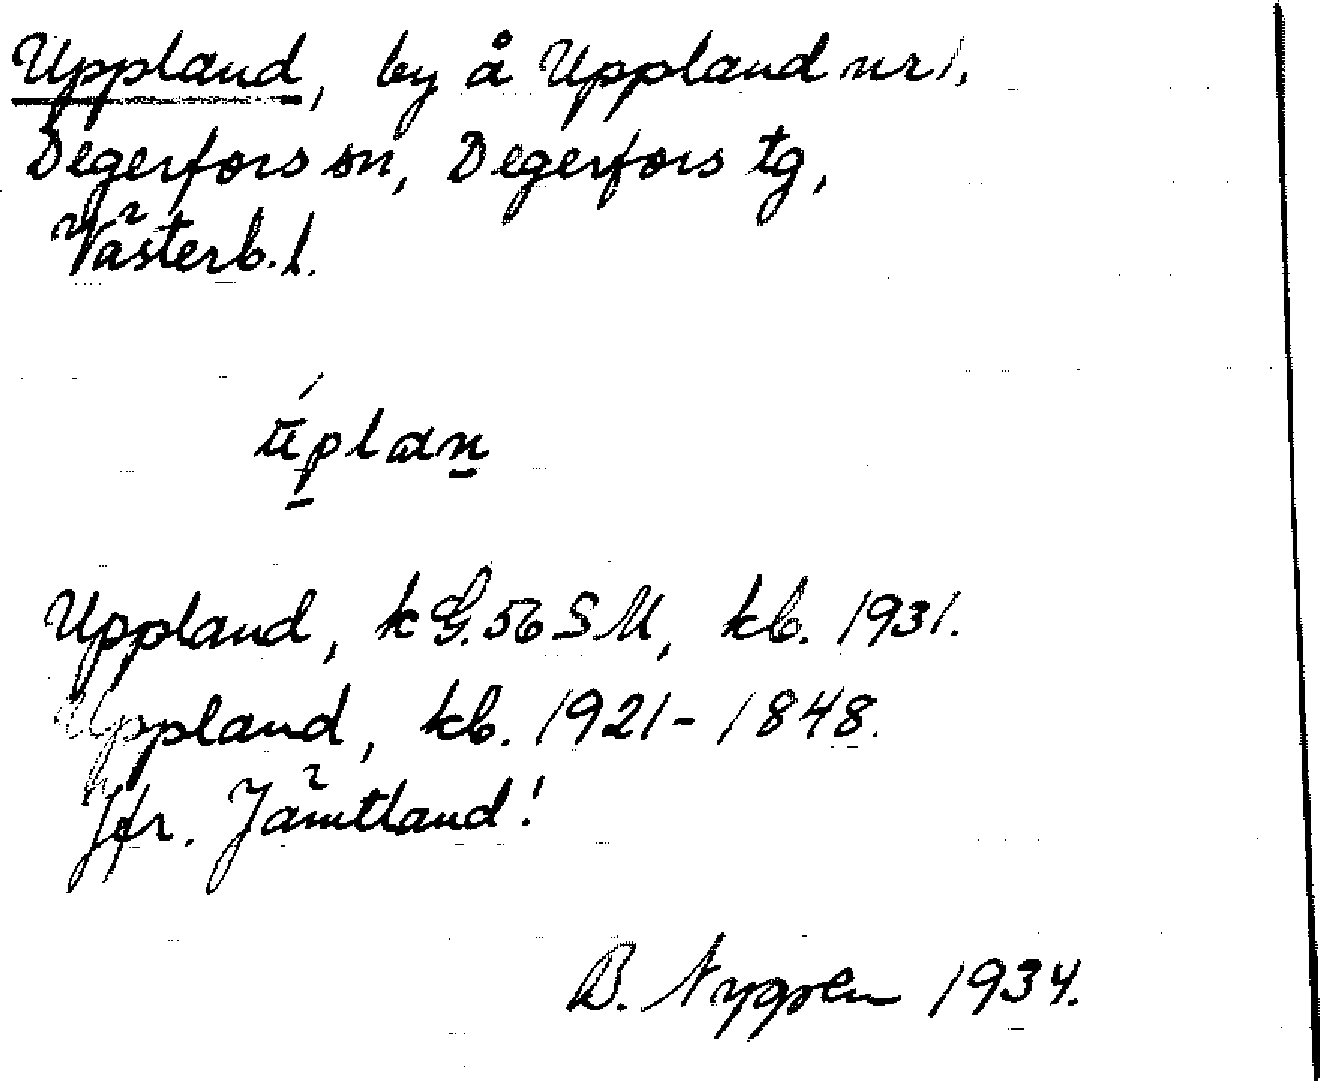 Uppland, by å Uppland nr 1,
Degerfors sn, Degerfors tg,
Västerb. l.
úplan
Uppland, k G. 56 SM, kb. 1931.
Uppland, kb. 1921-1848.
Jfr. Jämtland!
B. Nygren 1934.